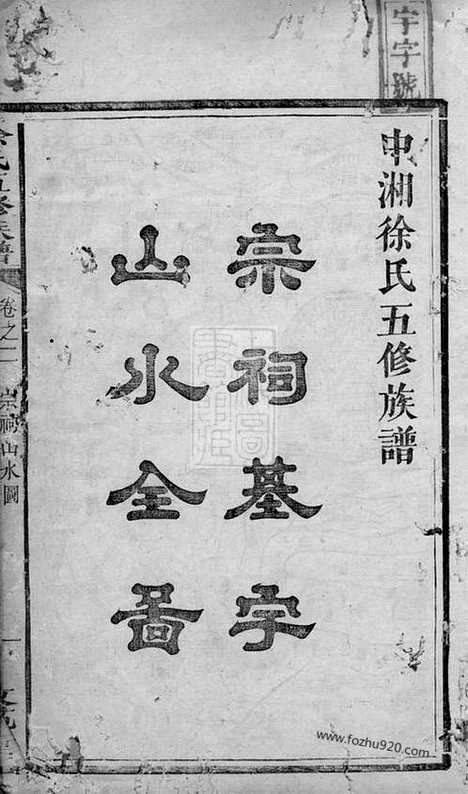 宇字號
中湘徐氏五修族譜
宗祠基字
山水全啚
徐氏五修族譜
卷之一
宗祠山水圖
一
www.fozhu920.com